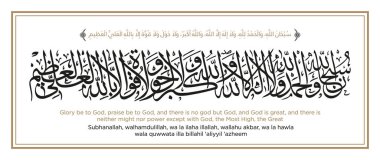 سُبْحَانَ اللهِ، وَالْحَمْدُ لِلّٰهِ، وَلَا إِلٰهَ إِلَّا اللهُ، وَاللهُ أَكْبَرُ، وَلَا حَوْلَ وَلَا قُوَّةَ إِلَّا بِاللهِ الْعَلِيِّ الْعَظِيمِ
سُبْحَانَ اللهِ وَالْحَمْدُ لِلّٰهِ وَلَا إِلٰهَ إِلَّا اللهُ وَاللهُ أَكْبَرُ وَلَا حَوْلَ وَلَا قُوَّةَ إِلَّا بِاللهِ الْعَلِيِّ الْعَظِيمِ
Glory be to God, praise be to God, and there is no god but God, and God is great, and there is
neither might nor power except with God, the Most High, the Great
Subhanallah, walhamdulillah, wa la ilaha illallah, wallahu akbar, wa la hawla
wala quwwata illa billahil 'aliyyil 'azheem